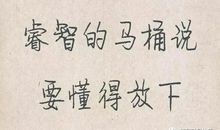 睿智的马桶说
要懂得放下